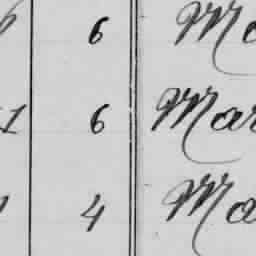 6 Ma
1 6 Mar
4 Ma